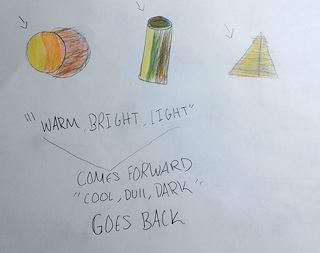 "WARM, BRIGHT, LIGHT"
COMES FORWARD
"COOL, DUll, DARK"
GOES BACK